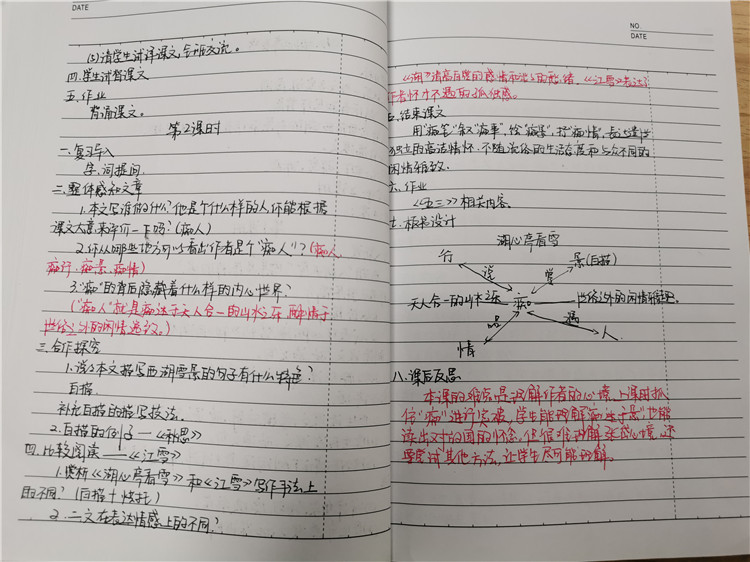 DATE
(3)请学生试译课文,全班交流。
四.学生试背课文
五.作业
背诵课文。
第2课时
一.复习导入
字.词提问.
二.整体感知文章
1.本文写谁做什么?他是个什么样的人你能根据
课文大意来评价一下吗?(痴人)
2.你从哪些地方可以看出作者是个“痴人”?(痴人
痴行.痴景.痴情)
3.“痴”的背后隐藏着什么样的内心世界?
(“痴人”就是痴迷于天人合一的山水之乐,醉情于
世俗之外的闲情逸致。)
三.合作探究
1.说说本文描写西湖雪景的句子有什么特色?
白描.
补充白描的描写技法.
2.白描的例子——《补思》
四.比较阅读——《江雪》
1.赏析《湖心亭看雪》和《江雪》写作手法上
的不同?(白描+烘托)
2.二文在表达情感上的不同?
NO.
DATE
《湖》清高自赏的感情和淡淡的愁绪.《江雪》表达
作者怀才不遇的孤独感。
五.结束课文
用“痴笔”叙“痴事”,绘“痴景”,抒“痴情”,表达遗世
独立的高洁情怀.不随流俗的生活态度和与众不同的
闲情雅致。
六.作业
《五三》相关内容.
七.板书设计
湖心亭看雪
行 景(白描)
说 赏
天人合一的山水之乐 痴 世俗之外的闲情雅致.
品 遇
情 人
八.课后反思
本课的难点是理解作者的心境.上课时抓
住“痴”进行突破,学生能理解痴迷于景,也能
读出对故国的怀念,但很难理解张岱心境,还
要尝试其他方法,让学生尽可能理解。